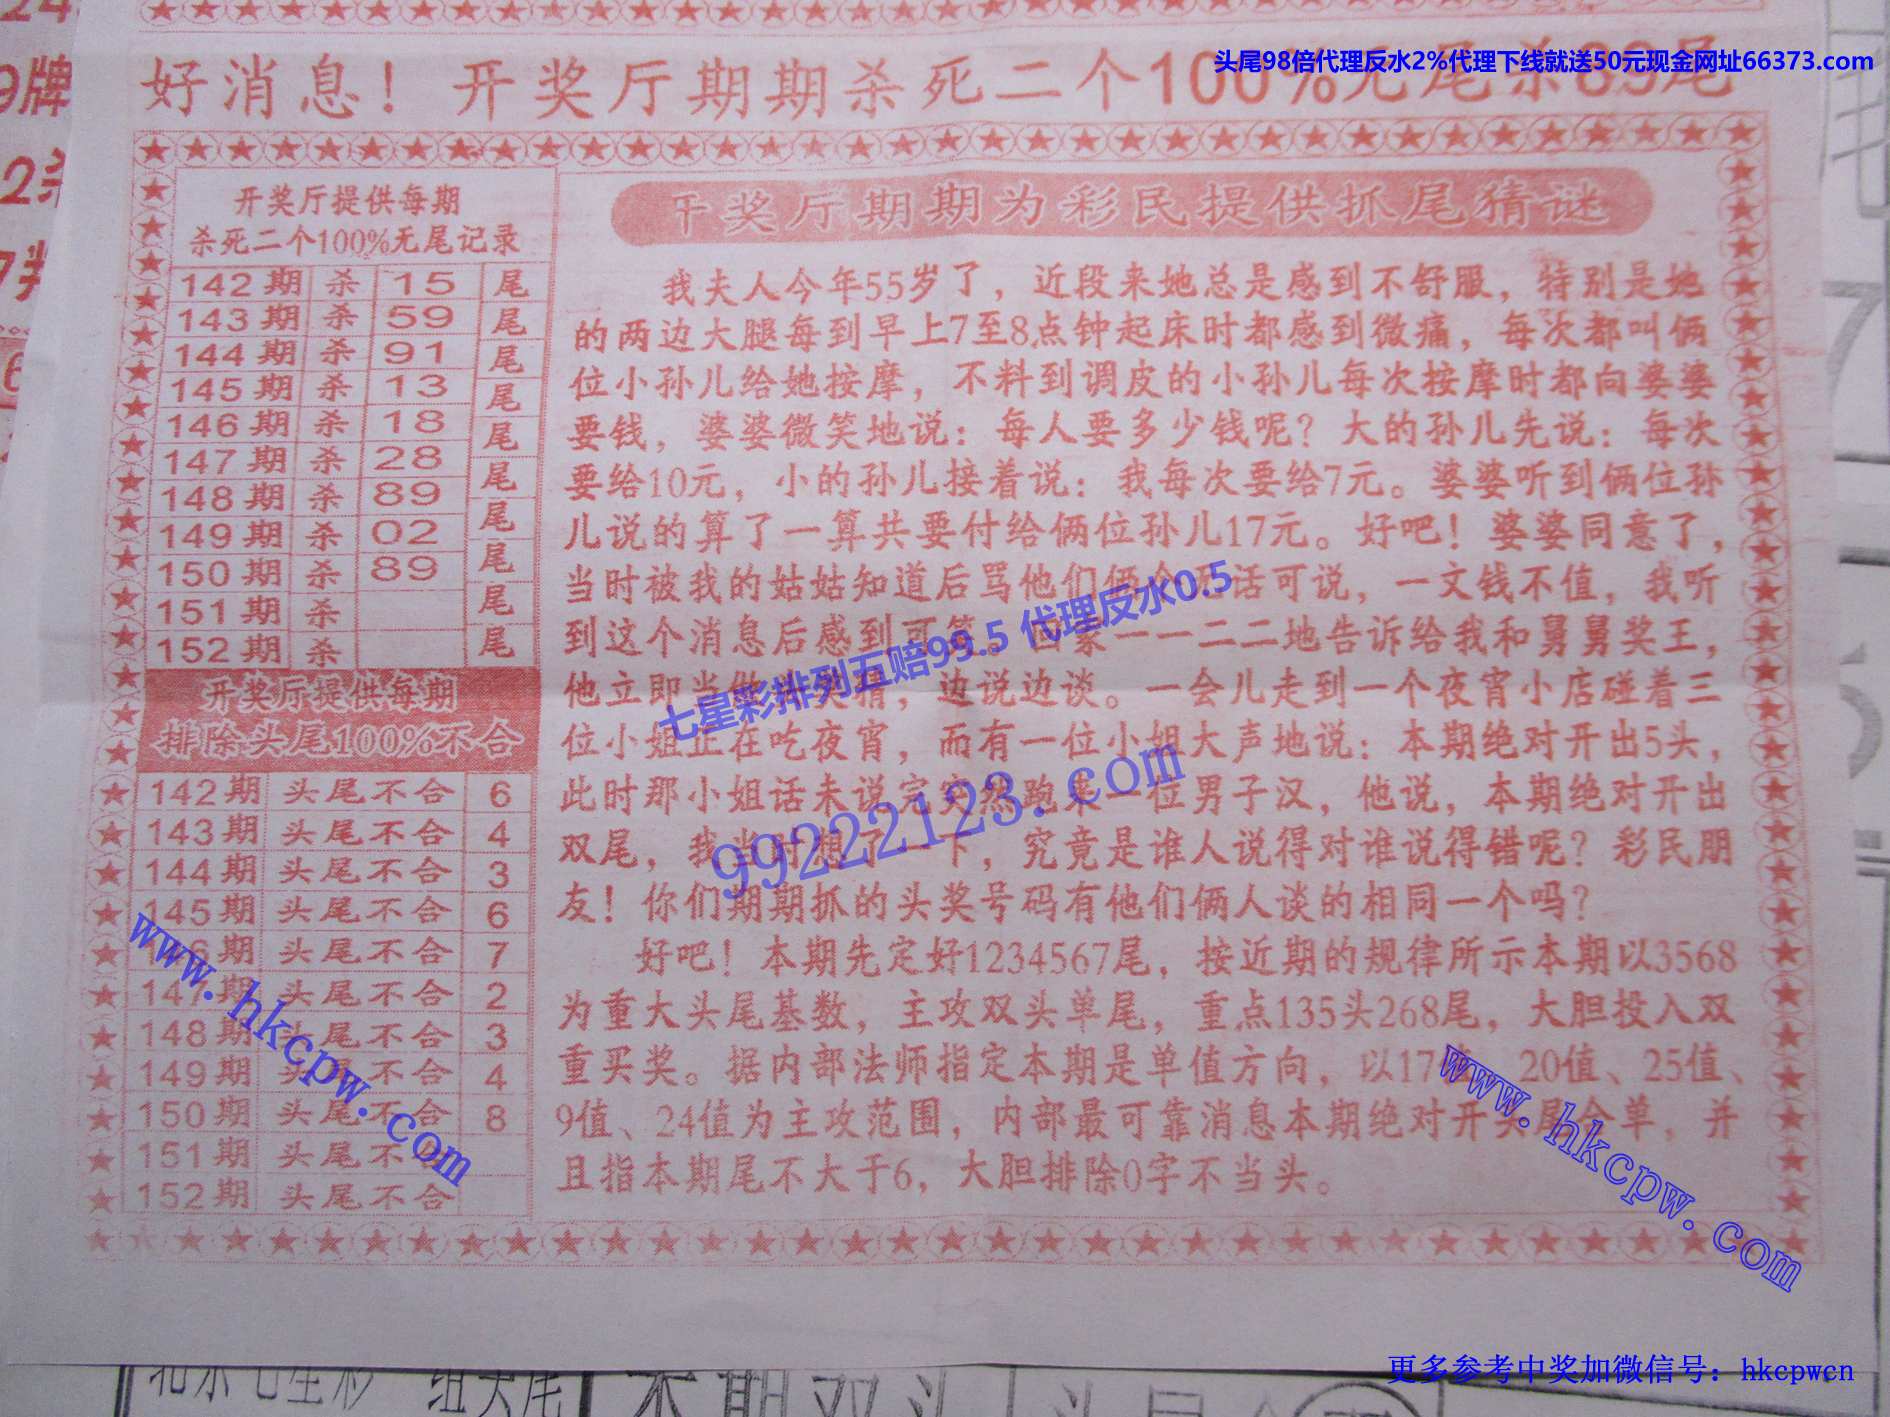 头尾98倍代理反水2%代理下线就送50元现金网址66373.com
好消息！开奖厅期期杀死二个100%无尾杀89尾
开奖厅提供每期
杀死二个100%无尾记录
142期 杀 15 尾
143期 杀 59 尾
144期 杀 91 尾
145期 杀 13 尾
146期 杀 18 尾
147期 杀 28 尾
148期 杀 89 尾
149期 杀 02 尾
150期 杀 89 尾
151期 杀 尾
152期 杀 尾
开奖厅提供每期
排除头尾100%不合
142期 头尾不合 6
143期 头尾不合 4
144期 头尾不合 3
145期 头尾不合 6
146期 头尾不合 7
147期 头尾不合 2
148期 头尾不合 3
149期 头尾不合 4
150期 头尾不合 8
151期 头尾不合
152期 头尾不合
奖厅期期为彩民提供抓尾猜谜
我夫人今年55岁了，近段来她总是感到不舒服，特别是她
的两边大腿每到早上7至8点钟起床时都感到微痛，每次都叫俩
位小孙儿给她按摩，不料到调皮的小孙儿每次按摩时都向婆婆
要钱，婆婆微笑地说：每人要多少钱呢？大的孙儿先说：每次
要给10元，小的孙儿接着说：我每次要给7元。婆婆听到俩位孙
儿说的算了一算共要付给俩位孙儿17元。好吧！婆婆同意了，
当时被我的姑姑知道后骂他们俩 话可说，一文钱不值，我听
到这个消息后感到可笑 回家一一二二地告诉给我和舅舅奖王，
他立即当做 猜，边说边谈。一会儿走到一个夜宵小店碰着三
位小姐正在吃夜宵，而有一位小姐大声地说：本期绝对开出5头，
此时那小姐话未说完突然跑来一位男子汉，他说，本期绝对开出
双尾，我当时想了一下，究竟是谁人说得对谁说得错呢？彩民朋
友！你们期期抓的头奖号码有他们俩人谈的相同一个吗？
好吧！本期先定好1234567尾，按近期的规律所示本期以3568
为重大头尾基数，主攻双头单尾，重点135头268尾，大胆投入双
重买奖。据内部法师指定本期是单值方向，以17值、20值、25值、
9值、24值为主攻范围，内部最可靠消息本期绝对开头尾合单，并
且指本期尾不大于6，大胆排除0字不当头。
七星彩排列五赔99.5 代理反水0.5
99222123.com
www.hkcpw.com
www.hkcpw.com
更多参考中奖加微信号：hkcpwcn